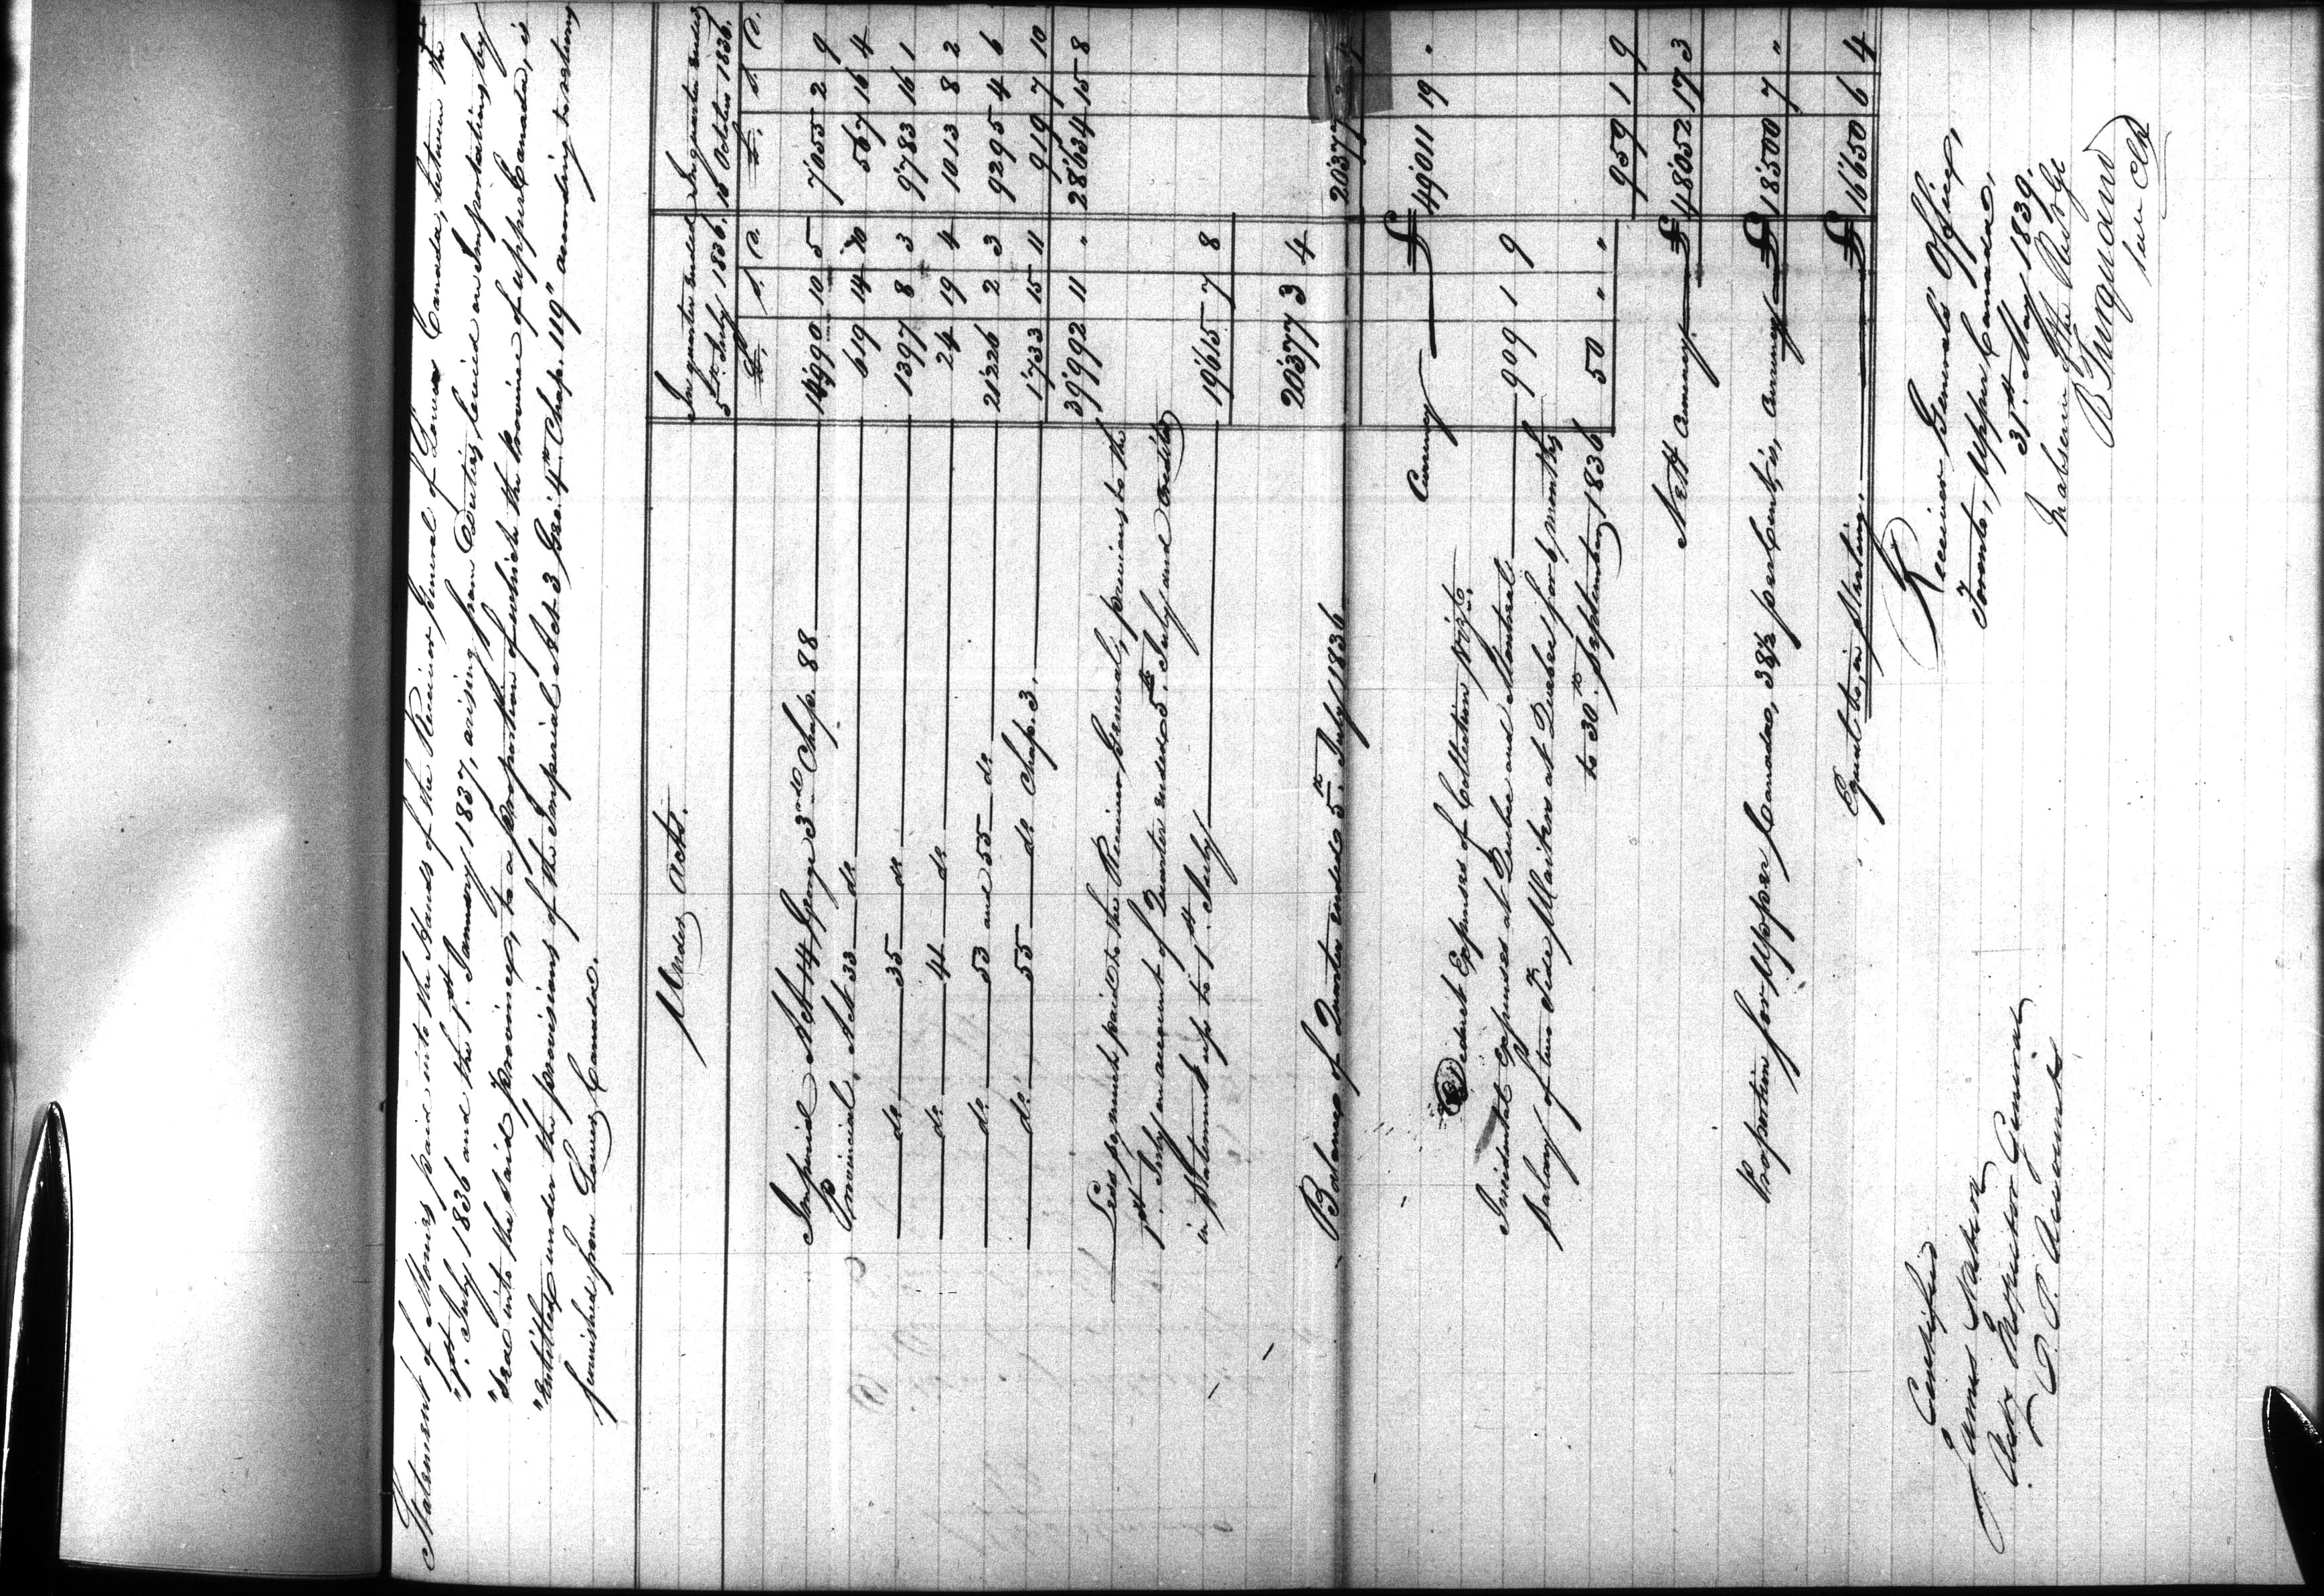 Statement of Monies paid into the Hands of the Receiver General of Lower Canada, between the
"1st. July 1836 and the 1st. January 1837, arising from Duties levied on Importations by
"Sea into the said Province, to a proportion of which the Province of Upper Canada, is
"Entitled under the provisions of the Imperial Act 3 Geo: 4th Chap. 119" according to returns
furnished from Lower Canada.
Under Acts. In quarter ended 5th July 1836. In quarter ended 10 October 1836.
£. s. D. £. s. D.
Imperial Act 14 George 3rd Chap. 88 14'990 10 5 7'055 2 9
Provincial, Act 33 do 619 14 10 567 16 4
do 35 do 1397 8 3 9'783 16 1
do 41 do 24 19 4 1013 8 2
do 53 and 55 do 21'226 2 3 9295 4 6
do 55 do Chap. 3. 1'733 15 11 919 7 10
39'992 11 " 28'634 15 8
Less so much paid to the Receiver General, previous to the
1st July on account of Quarter ended 5th July and credited
in Statement up to 1st July 19'615 7 8
20'377 3 4
Balance of Quarter ended 5th July 1836 20'377 3 4
Currency £ 49'011 19 "
Deduct Expenses of Collection vizt.
Incidental Expenses at Quebec and Montreal 909 1 9
Salary of two Tide Waiters at Quebec for 6 months
to 30th September 1836 50 " "
959 1 9
Nett Currency £ 48'052 17 3
Proportion for Upper Canada, 38½ per Cent is, Currency £ 18'500 7 "
Equal to, in Sterling. £ 16'650 6 4
Receiver General's Office,
Toronto, Upper Canada,
31st. May 1839.
In absence of the Recr. Gl
B Turquand
Sen Clk
Certified
James Nation
Actg Inspector General
P. P. Accounts